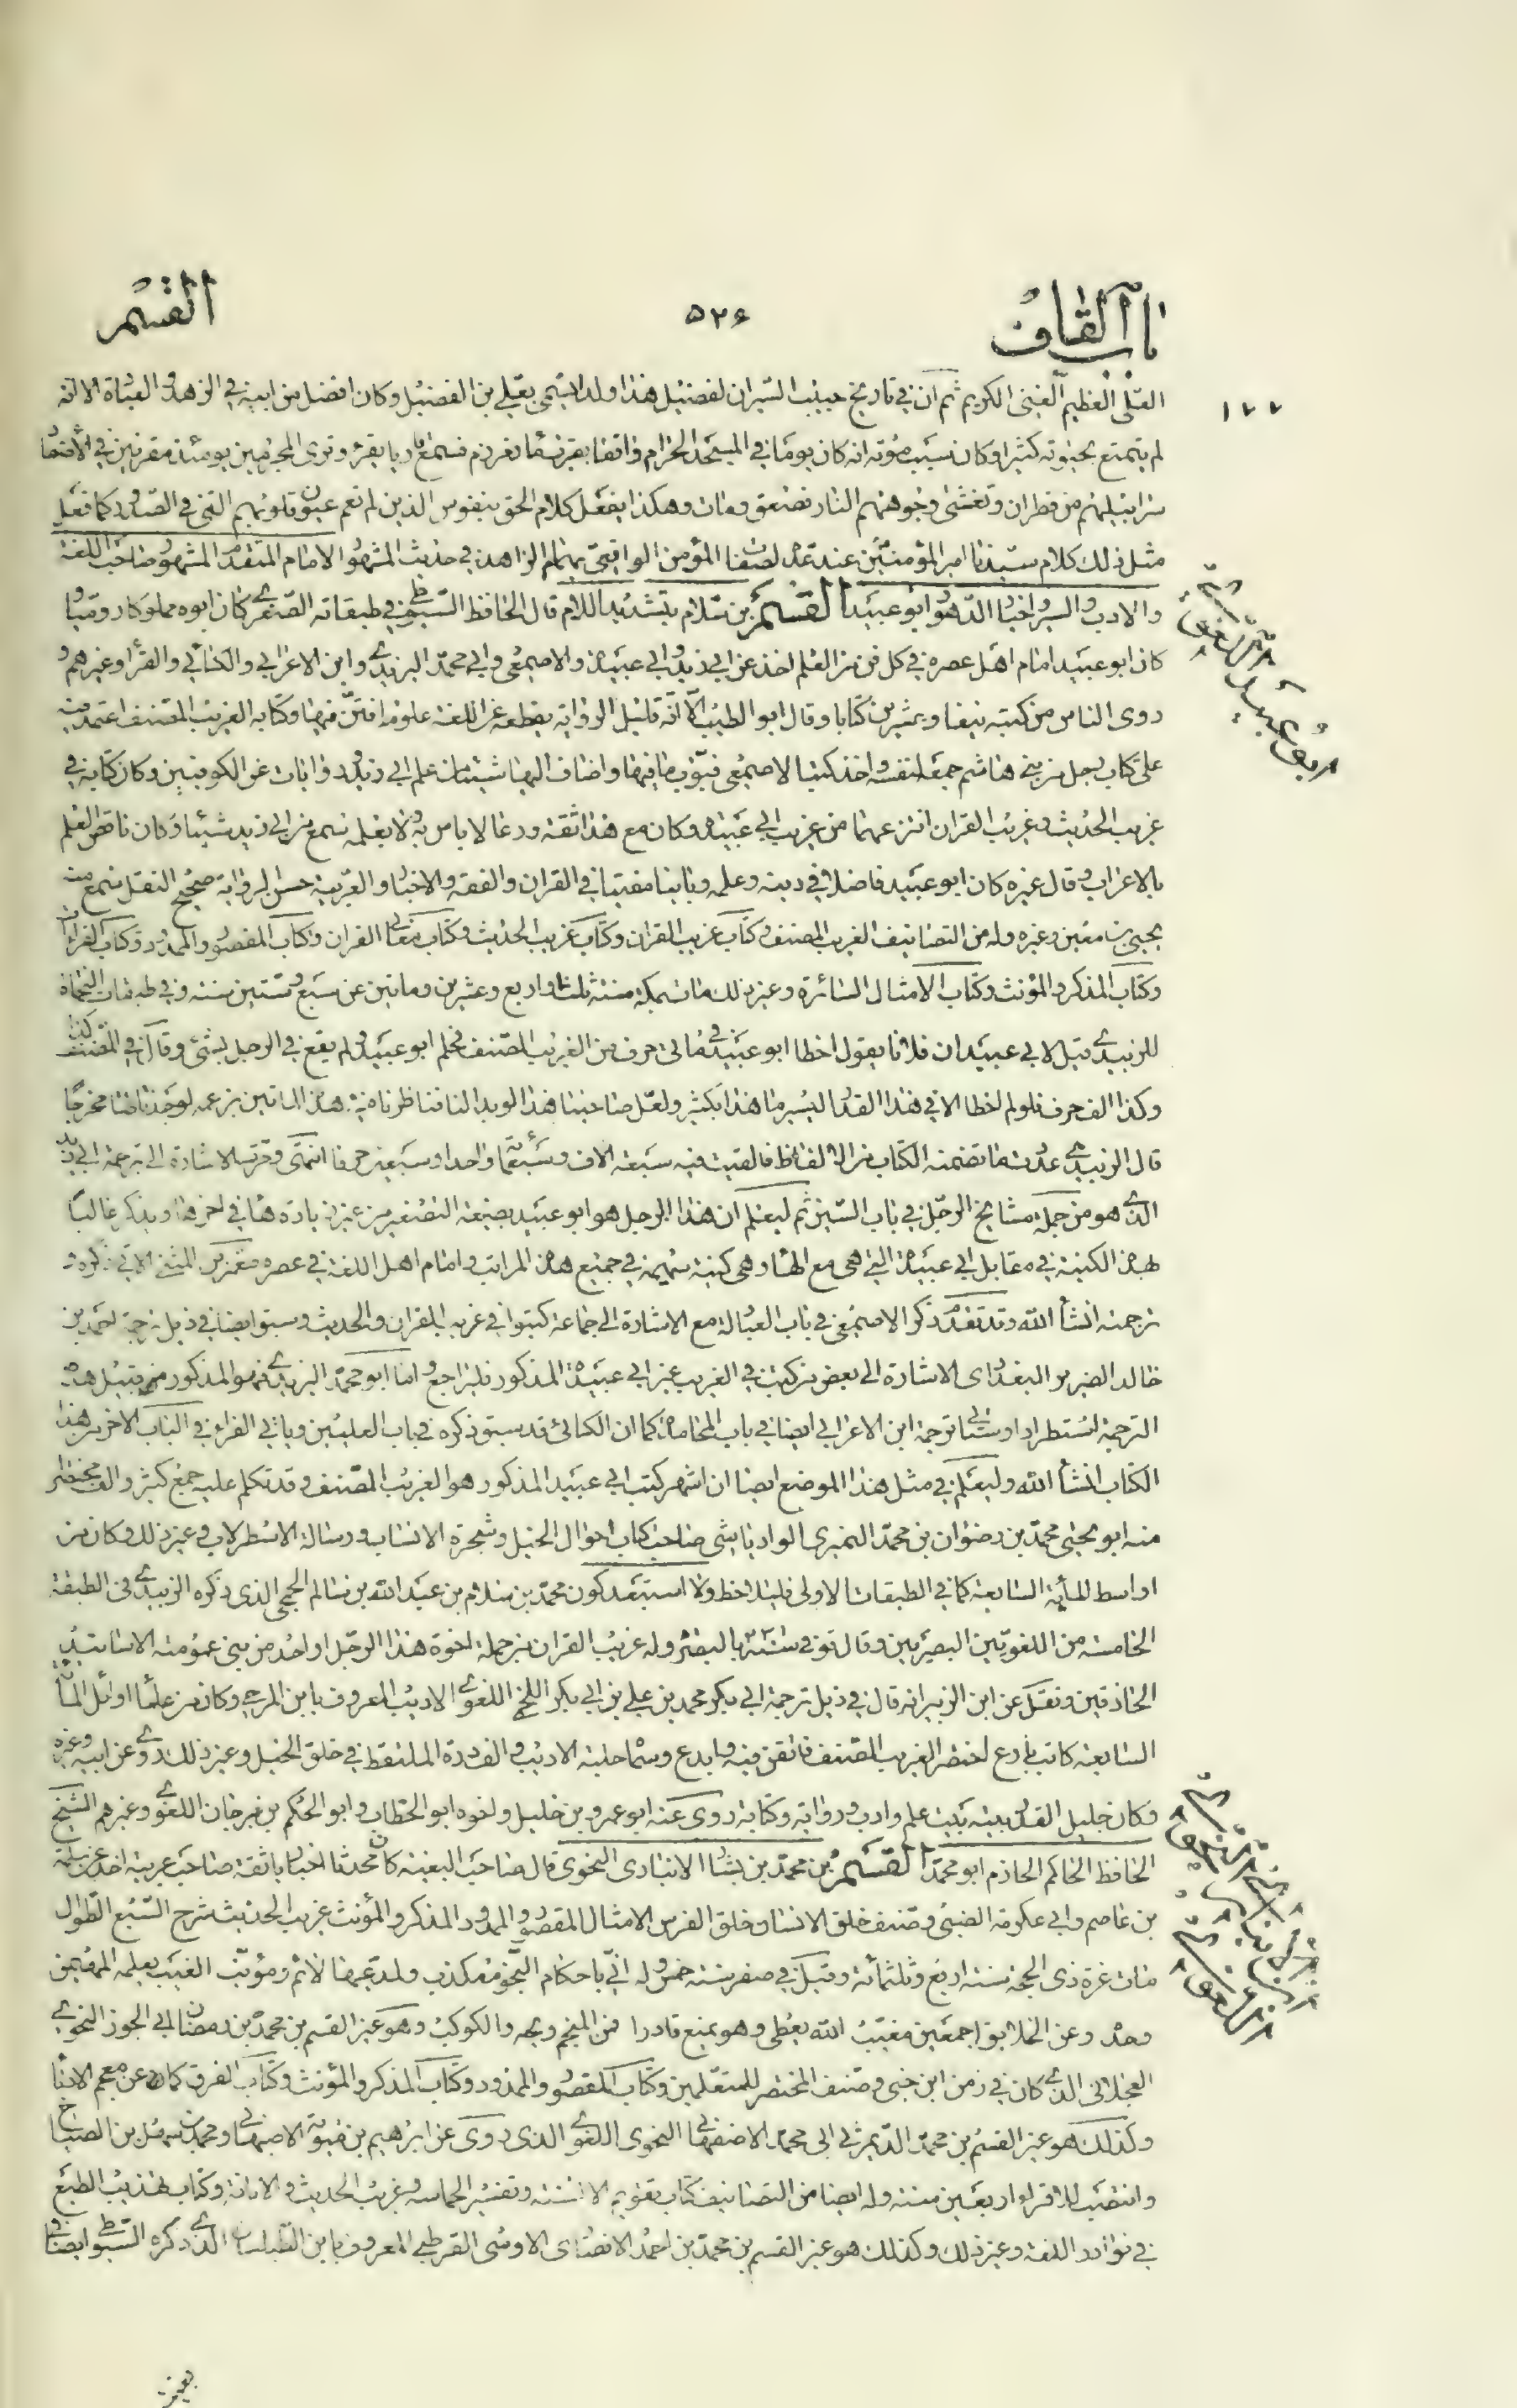 باب القاف
٥٢٦
القسم
١٧٧
العلى العظيم الغنى الكريم ثم ان في تاريخ حبيب السير ان لفضيل هذا ولدا يسمى بعلى بن الفضيل وكان افضل من ابيه في الزهد والعبادة الا انه
لم يتمتع بحيوته كثيرا وكان سبب موته انه كان يوما في المسجد الحرام واقفا بقرب ماء زمزم فسمع قاريا يقرء وترى المجرمين يومئذ مقرنين في الأصفاد
سرابيلهم من قطران وتغشى وجوههم النار فصعق ومات وهكذا يفعل كلام الحق بنفوس الذين لم تعم عيون قلوبهم التي في الصدور كما فعل
مثل ذلك كلام سيدنا امير المؤمنين عند عده لصفات المؤمن الواقعى بهمام الزاهد في حديثه المشهور الامام المتقدم المشهور صاحب اللغة
والادب والسير والخبر الذى هو ابو عبيد القسم بن سلام بتشديد اللام قال الحافظ السيوطى في طبقاته الصغرى كان ابوه مملوكا روميا و
كان ابو عبيد امام اهل عصره في كل فن من العلم اخذ عن ابي زيد وابي عبيدة والاصمعى وابي محمد اليزيدى وابن الاعرابي والكسائى والفراء وغيرهم و
روى الناس من كتبه نيفا وعشرين كتابا وقال ابو الطيب الا انه قليل الرواية يقطعه عن اللغة علوم افتن فيها وكتابه الغريب المصنف اعتمد فيه
على كتاب رجل من بني هاشم جمعه لنفسه واخذ كتب الاصمعى فبوب ما فيها واضاف اليها شيئا من علم ابي زيد وروايات عن الكوفيين وكان كتابه في
غريب الحديث وغريب القران انتزعهما من غريب ابي عبيدة وكان مع هذا ثقة ورعا لا باس به ولا يعلمه سمع من ابي زيد شيئا وكان ناقص العلم
بالاعراب وقال غيره كان ابو عبيد فاضلا في دينه وعلمه ربانيا مفتيا في القران والفقه والاخبار والعربية حسن الرواية صحيح النقل سمع منه
يحيى بن معين وغيره وله من التصانيف الغريب المصنف وكتاب غريب القران وكتاب غريب الحديث وكتاب معانى القران وكتاب المقصور والممدود وكتاب القراءات
وكتاب المذكر والمؤنث وكتاب الامثال السائرة وغير ذلك مات بمكة سنة ثلث او اربع وعشرين وماتين عن سبع وستين سنة وفي طبقات النحاة
للزبيدى قيل لابي عبيد ان فلانا يقول اخطا ابو عبيد في مائتى حرف من الغريب المصنف فحلم ابو عبيد ولم يقع في الرجل بشئ وقال في المصنف كذا
وكذا الف حرف فلو لم اخطا الا في هذا القدر اليسير ما هذا بكثير ولعل صاحبنا هذا لو بدا لنا فناظرناه في هذه الماتين بزعمه لوجدنا لها مخرجا
قال الزبيدى عددت ما تضمنه الكتاب من الالفاظ فالفيت فيه سبعة الاف وسبعمائة واحدا وسبعين حرفا انتهى وقد مرت الاشارة الى ترجمة ابي زيد
الذى هو من جملة مشايخ الرجل في باب السين ثم ليعلم ان هذا الرجل هو ابو عبيد بصيغة التصغير من غير زيادة هاء في اخرها ويذكر غالبا
بهذه الكنية في مقابل ابي عبيدة التي هي مع الهاء وهي كنية سهيمه في جميع هذه المراتب وامام اهل اللغة في عصره معمر بن المثنى الاتى ذكره و
ترجمته انشأ الله وقد تقدم ذكر الاصمعى في باب العبادلة مع الاشارة الى جماعة كتبوا في غريب القران والحديث وسبق ايضا في ذيل ترجمة احمد بن
خالد الضرير البغدادى الاشارة الى بعض من كتب في الغريب غير ابي عبيدة المذكور فليراجع واما ابو محمد اليزيدى فهو المذكور من قبيل هذه
الترجمة استطرادا وستأتي ترجمة ابن الاعرابي ايضا في باب المحامدة كما ان الكسائى قد سبق ذكره في باب العليين وياتى الفراء في الباب الاخر من هذا
الكتاب انشأ الله وليعلم في مثل هذا الموضع ايضا ان اشهر كتب ابي عبيد المذكور هو الغريب المصنف وقد تكلم عليه جمع كثير والف مختصرا
منه ابو يحيى محمد بن رضوان بن محمد النميرى الوادياشى صاحب كتاب احوال الخيل وشجرة الانساب ورسالة الاسطرلاب وغير ذلك وكان من
اواسط المأية السابعة كما في الطبقات الاولى فليلاحظ ولا استبعد كون محمد بن سلام بن عبد الله بن سالم الجمحى الذى ذكره الزبيدى في الطبقة
الخامسة من اللغويين البصريين وقال توفى سنة بالبصرة وله غريب القران من جملة اخوة هذا الرجل او احد من بني عمومته الاساتيد
الحاذقين ونقل عن ابن الزبير انه قال في ذيل ترجمة ابي بكر محمد بن علي بن ابي بكر اللخمى اللغوى الاديب المعروف بابن المرخى وكان من علماء اوائل المأة
السابعة كاتب بارع اختصر الغريب المصنف فاتقن فيه وابدع وسماه حلية الاديب والف درة الملتقط في خلق الخيل وغير ذلك روى عن ابيه وغيره
وكان جليل القدر بيته بيت علم وادب ورواية وكتابة روى عنه ابو عمرو بن خليل واخوه ابو الخطاب وابو الحكم بن برجان اللغوى وغيرهم الشيخ
الحافظ الحاكم الحازم ابو محمد القسم بن محمد بن بشار الانبارى النحوى قال صاحب البغية كان محدثا اخباريا ثقة صاحب عربية اخذ عن سلمة
بن عاصم وابي عكرمة الضبى وصنف خلق الانسان وخلق الفرس الامثال المقصور والممدود المذكر والمؤنث غريب الحديث شرح السبع الطوال
مات غرة ذى الحجة سنة اربع وثلثمائة وقيل في صفر سنة خمس وله انى باحكام النجوم مكذب ولمدعيها لائم ومؤنب الغيب يعلمه المهيمن
وحده وعن الخلايق اجمعين مغيب الله يعطى وهو يمنع قادرا فمن المنجم ويحه والكوكب وهو غير القسم بن محمد بن رمضان ابي الجود النحوى
العجلانى الذى كان في زمن ابن جنى وصنف المختصر للمتعلمين وكتاب المقصور والممدود وكتاب المذكر والمؤنث وكتاب الفرق كما عن معجم الادباء
وكذلك هو غير القسم بن محمد الديمرتى ابي محمد الاصفهانى النحوى اللغوى الذى روى عن ابرهيم بن متويه الاصبهانى ومحمد بن سهل بن الصباح
وانتصب للاقراء اربعين سنة وله ايضا من التصانيف كتاب تقويم الالسنة وتفسير الحماسة وغريب الحديث والابانة وكتاب تهذيب الطبع
في نوادر اللغة وغير ذلك وكذلك هو غير القسم بن محمد بن احمد الانصارى الاوسى القرطبى المعروف بابن الطيلسان الذى ذكره السيوطى ايضا في